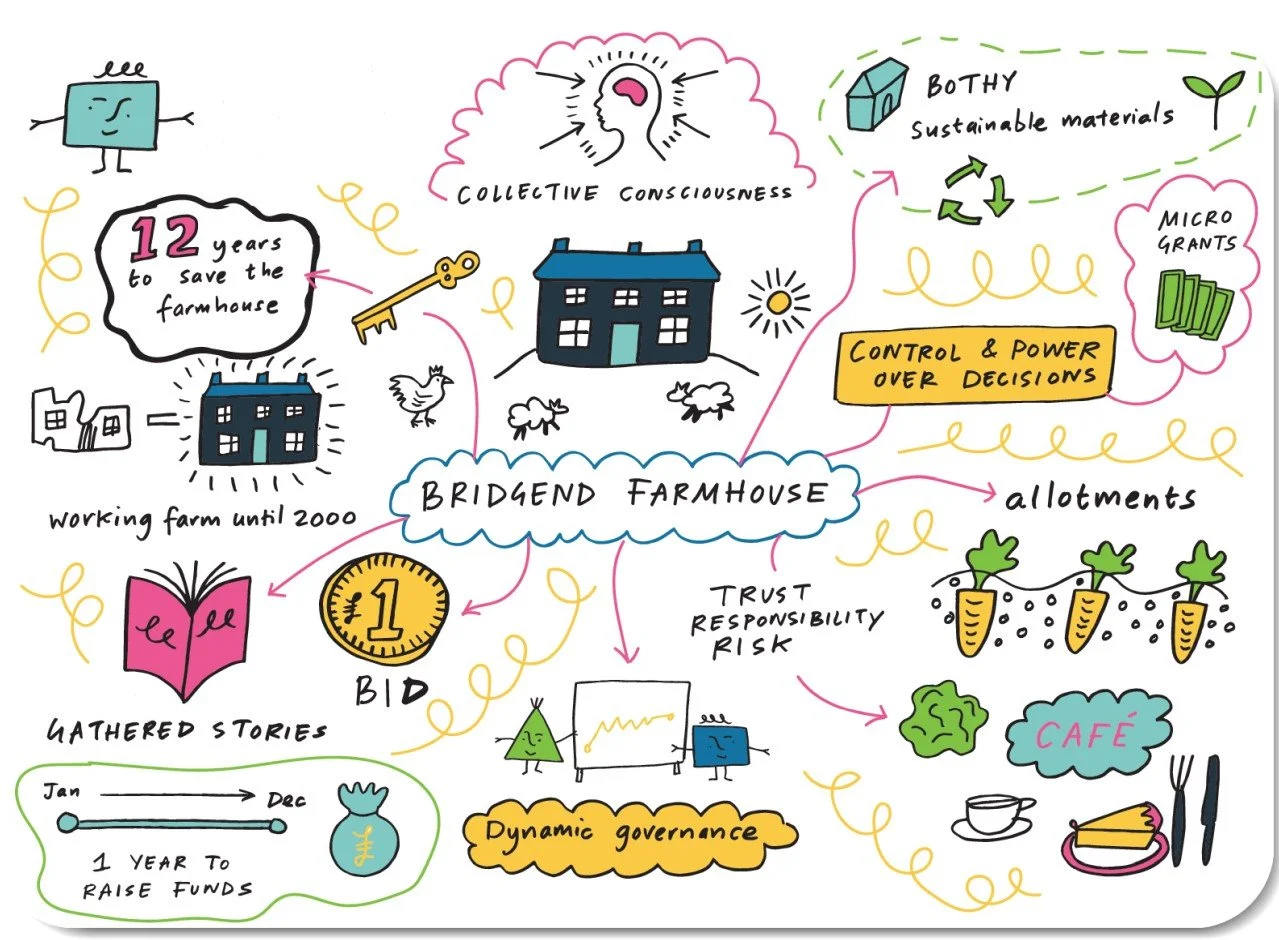 COLLECTIVE CONSCIOUSNESS
BOTHY
Sustainable materials
12 years
to save the
farmhouse
MICRO
GRANTS
CONTROL & POWER
OVER DECISIONS
BRIDGEND FARMHOUSE
working farm until 2000
allotments
£1
BID
TRUST
RESPONSIBILITY
RISK
GATHERED STORIES
CAFÉ
Jan
Dec
£
1 YEAR TO
RAISE FUNDS
Dynamic governance